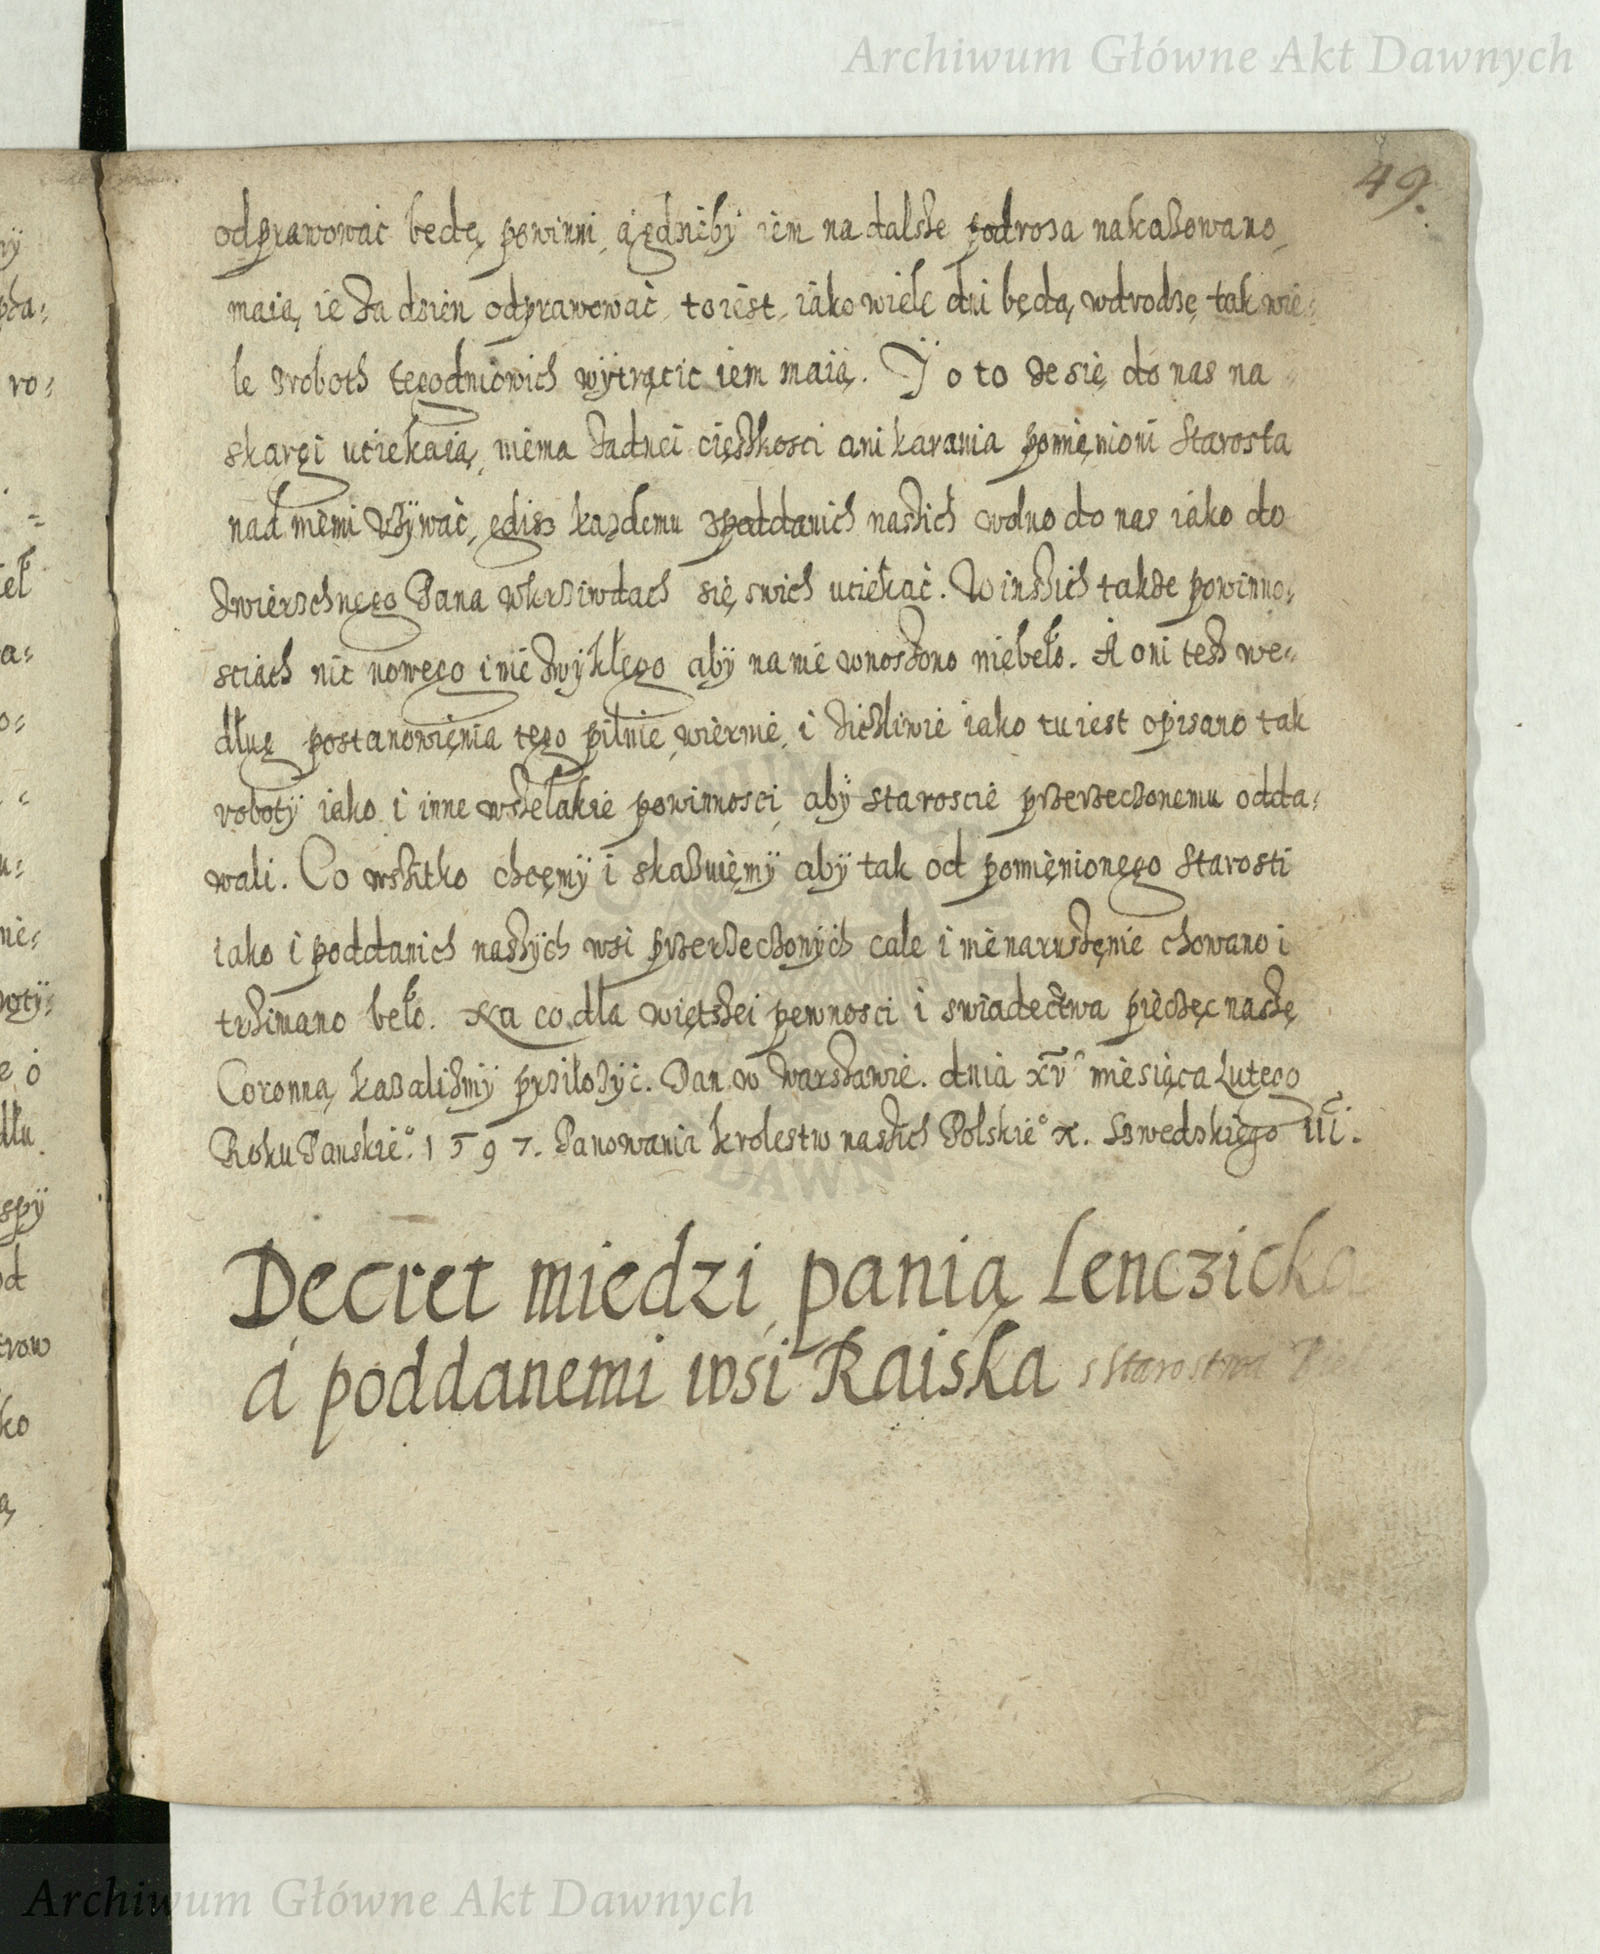 Archiwum Główne Akt Dawnych
49.
odprawować będę powinni, a gdzieby iem na dalsze podroża nakazowano,
maią ie za dzień odprawować, to iest, iako wiele dni będą wdrodze, tak wie=
le zroboth tegodniowich wytrącic iem maią. Y o to że się do nas na
skargi uciekaią, niema żadnei cięszkosci ani karania pomięnioni Starosta
nad niemi używać, gdisz każdemu zpoddanich naszich wolno do nas iako do
zwierzchnego Pana wkrziwdach się swich uciekać. W inszich takze powinno=
sciach nic nowego i nie zwykłego aby na nie wnoszono niebeło. A oni tesz we=
dług postanowięnia tego pilnie, wiernie, i ziczliwie iako tu iest opisano tak
roboty iako i inne wszelakie powinnosci, aby staroscie przerzeczonemu odda=
wali. Co wszitko chcęmy i skazuięmy aby tak od pomięnionego Starosti
iako i poddanich naszych wsi przerzeczonych cale i nienaruszęnie chowano i
trzimano beło. Na co dla więtszei pewnosci i swiadectwa pieczęc naszę
Coronną kazalismy prziłożyć. Dan w Warszawie. dnia xv miesiąca Lutego
Roku Panskie°. 1597. Panowania krolestw naszich Polskie° x. Szwedskięgo iii.
Decret miedzi panią Lenczicką
a poddanemi wsi Raiska s Starostwa
Archiwum Główne Akt Dawnych